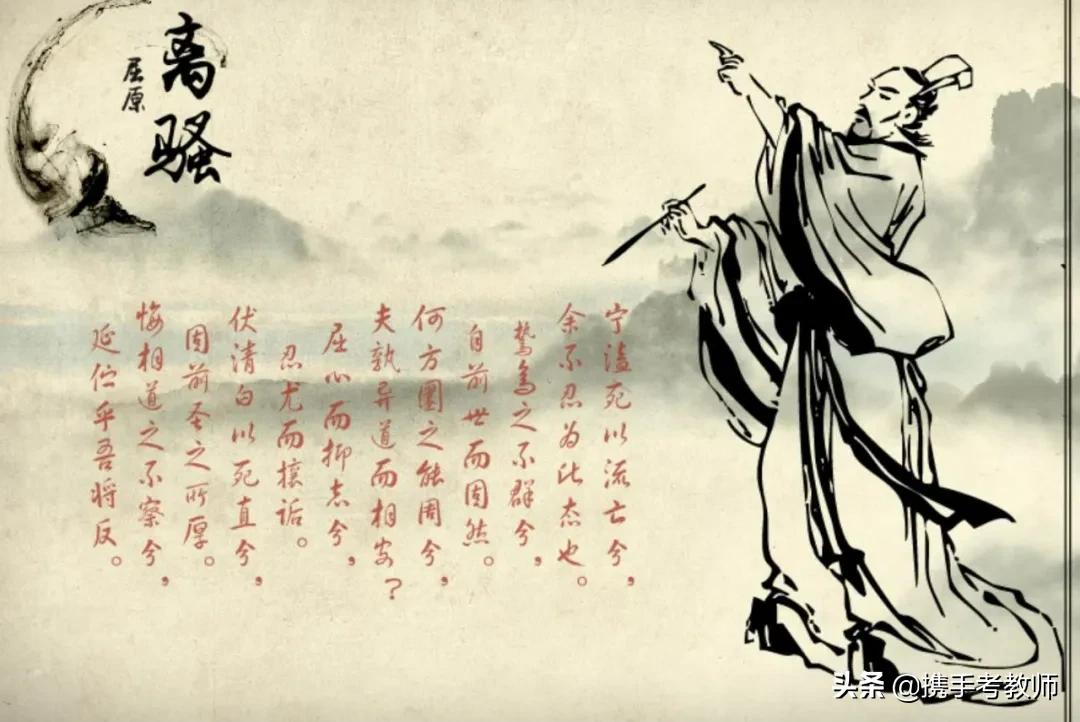 离骚
屈原
宁溘死以流亡兮，
余不忍为此态也。
鸷鸟之不群兮，
自前世而固然。
何方圜之能周兮，
夫孰异道而相安？
屈心而抑志兮，
忍尤而攘诟。
伏清白以死直兮，
固前圣之所厚。
悔相道之不察兮，
延伫乎吾将反。
头条 @携手考教师